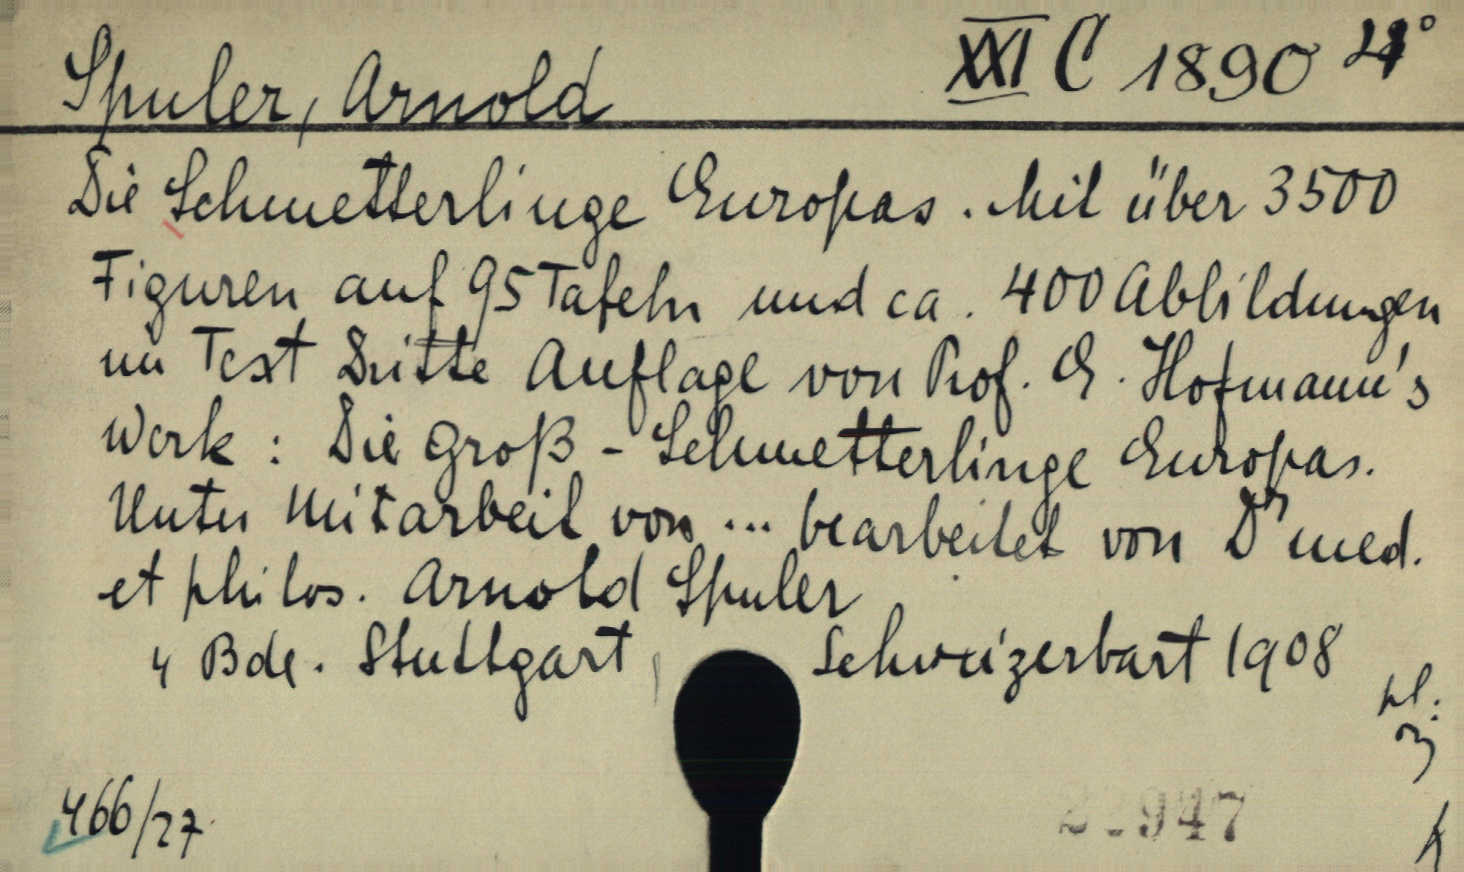 Spuler, Arnold
XXI C 1890 4°
Die Schmetterlinge Europas. Mit über 3500
Figuren auf 95 Tafeln und ca. 400 Abbildungen
im Text Dritte Auflage von Prof. E. Hofmann's
Werk: Die Groß-Schmetterlinge Europas.
Unter Mitarbeit von ... bearbeitet von Dr med.
et philos. Arnold Spuler
4 Bde. Stuttgart, Schweizerbart 1908
466/27